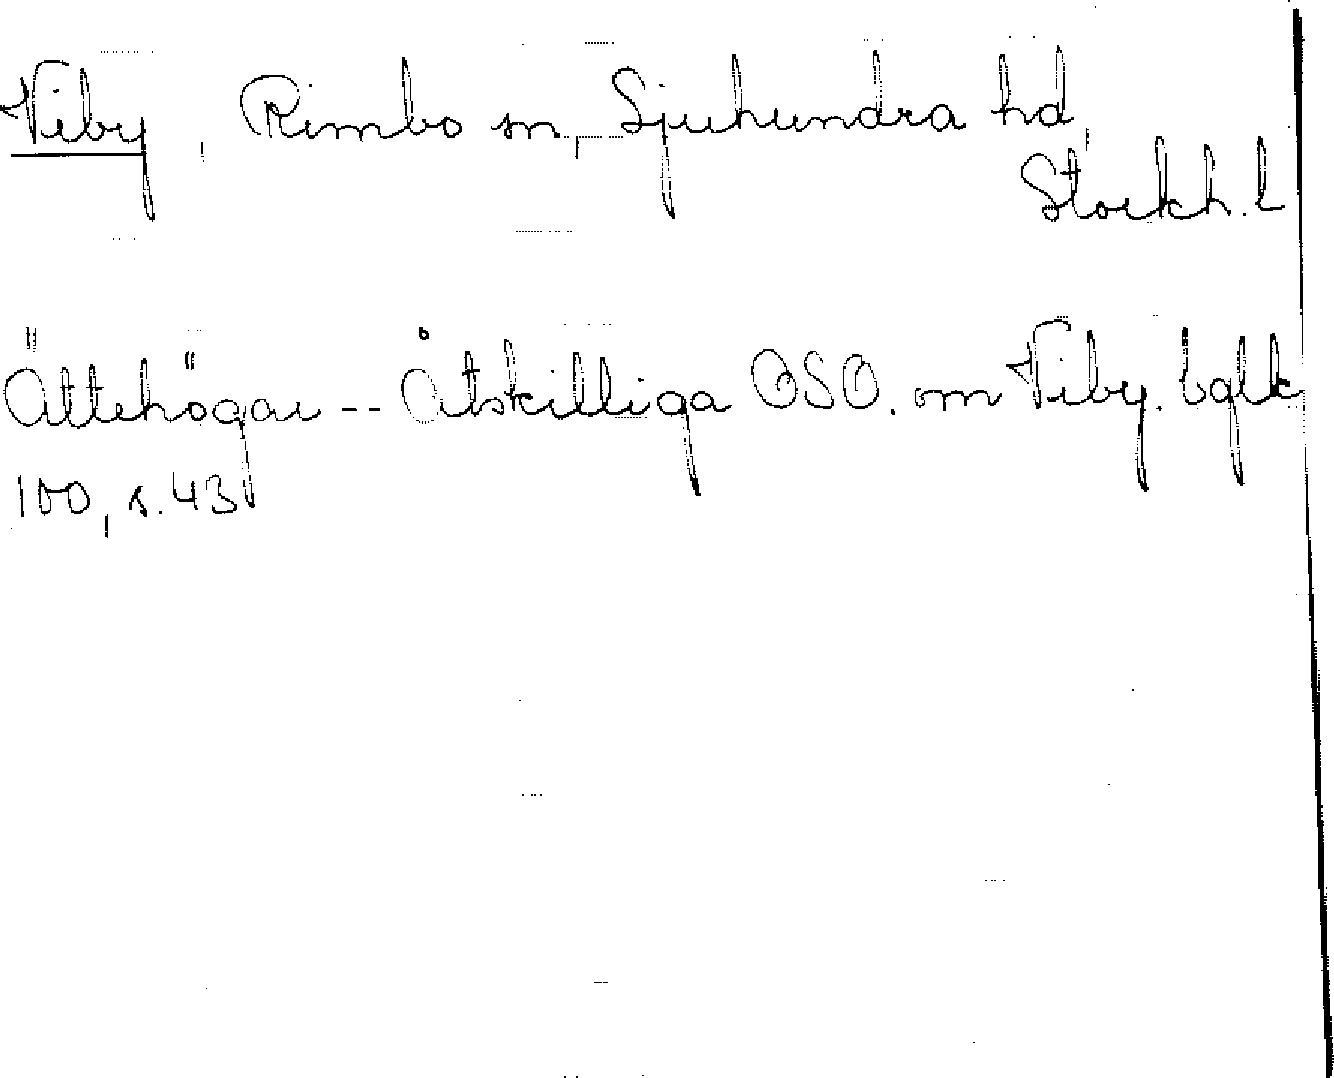 Viby, Rimbo sn, Sjuhundra hd,
Stockh. l
Ättehögar -- Åtskilliga OSO. om Viby. bglk
100, s. 43